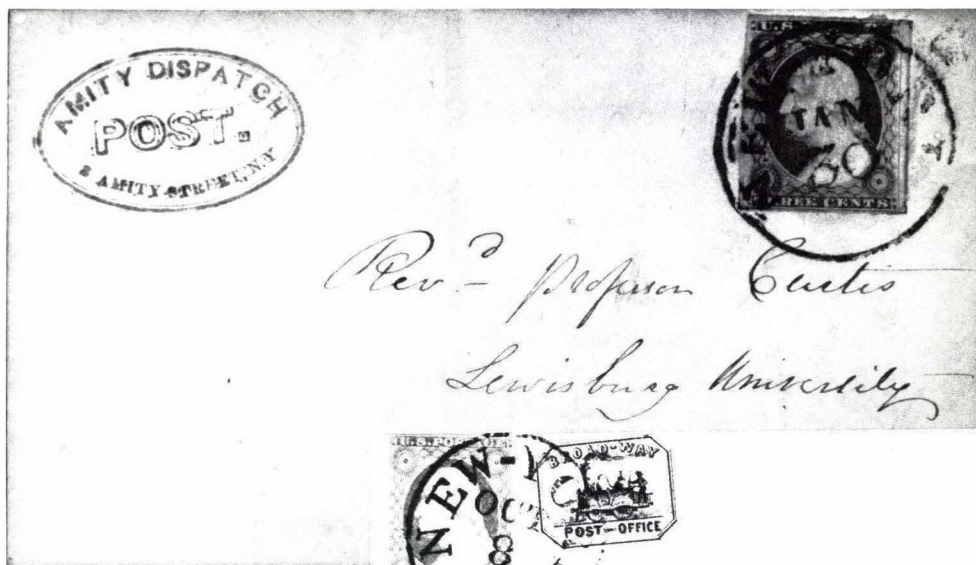 AMITY DISPATCH
POST.
AMITY STREET, N.Y
U.S.
JAN
REE CENTS
Revd Professor Curtis
Lewisburg University
U.S. POSTAGE
NEW-Y
OCT
8
BROAD-WAY
POST-OFFICE